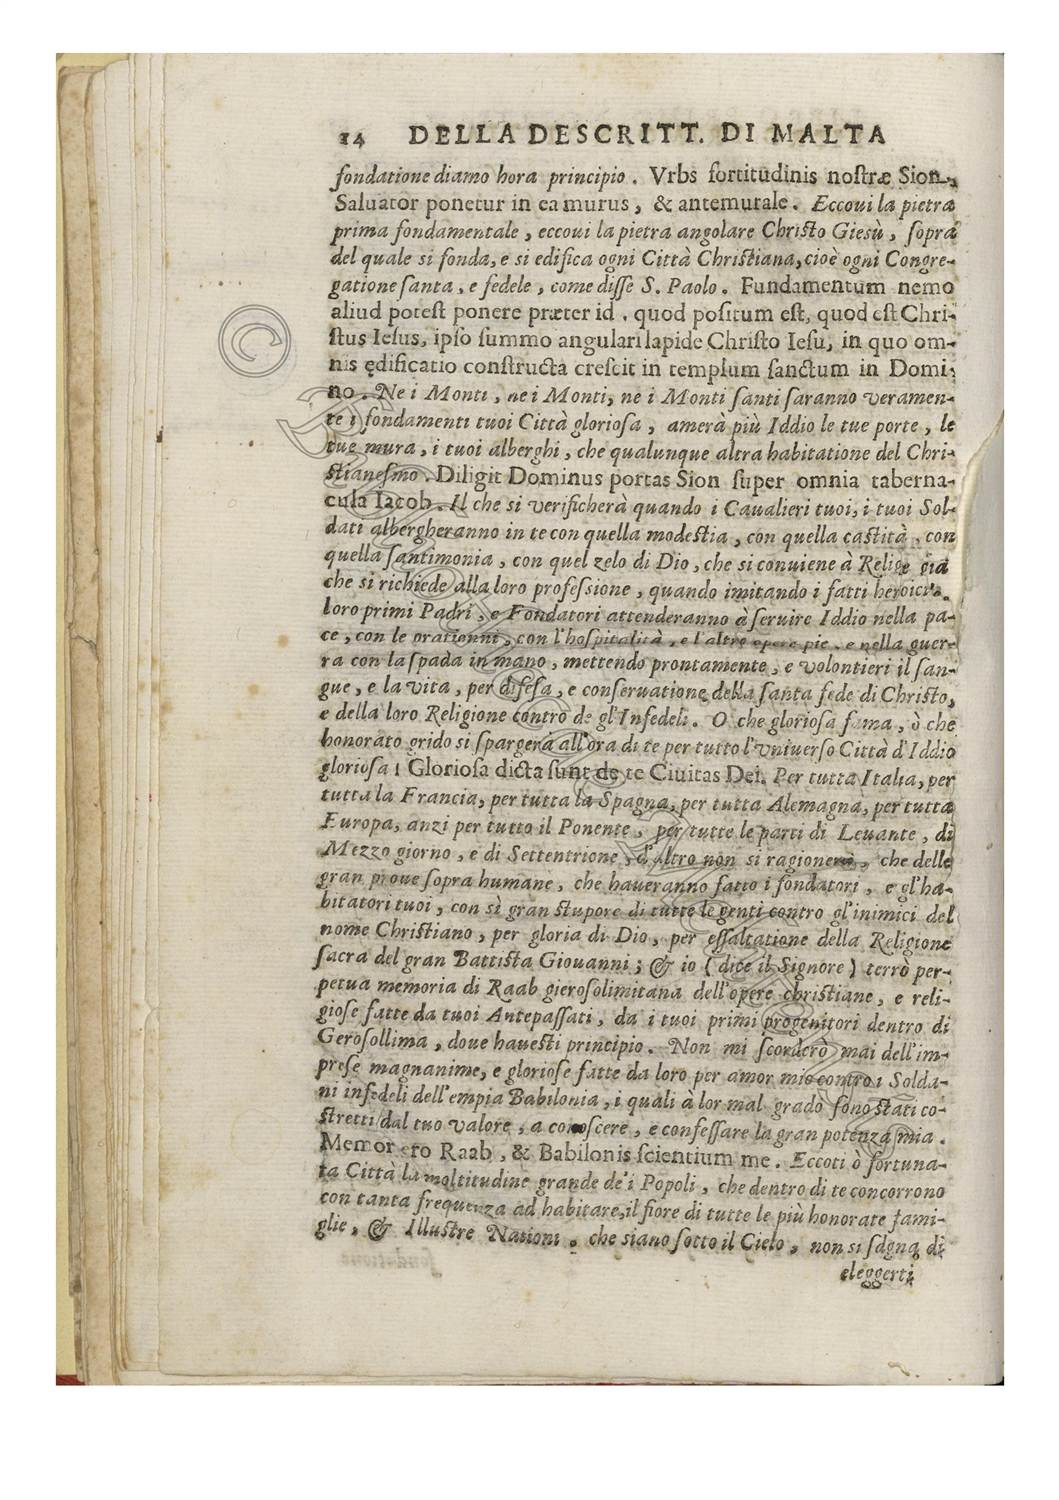 14 DELLA DESCRITT. DI MALTA
fondatione diamo hora principio. Vrbs fortitudinis nostræ Sion,
Saluator ponetur in ea murus, & antemurale. Eccoui la pietra
prima fondamentale, eccoui la pietra angolare Christo Giesù, sopra
del quale si fonda, e si edifica ogni Città Christiana, cioè ogni Congre-
gatione santa, e fedele, come disse S. Paolo. Fundamentum nemo
aliud potest ponere præter id, quod positum est, quod est Chri-
stus Iesus, ipso summo angulari lapide Christo Iesu, in quo om-
nis ędificatio constructa crescit in templum sanctum in Domi-
no. Ne i Monti, ne i Monti, ne i Monti santi saranno veramen-
te i fondamenti tuoi Città gloriosa, amerà più Iddio le tue porte, le
tue mura, i tuoi alberghi, che qualunque altra habitatione del Chri-
stianesmo. Diligit Dominus portas Sion super omnia taberna-
cula Iacob. Il che si verificherà quando i Caualieri tuoi, i tuoi Sol-
dati albergheranno in te con quella modestia, con quella castità, con
quella santimonia, con quel zelo di Dio, che si conuiene à Relig
che si richiede alla loro professione, quando imitando i fatti heroici
loro primi Padri, e Fondatori attenderanno à seruire Iddio nella pa-
ce, con le orationni, con l'hospitalità, e l'altre opere pie, e nella guer-
ra con la spada in mano, mettendo prontamente, e volontieri il san-
gue, e la vita, per difesa, e conseruatione della santa fede di Christo,
e della loro Religione contro de gl'Infedeli. O che gloriosa fama, ò che
honorato grido si spargerà all'ora di te per tutto l'vniuerso Città d'Iddio
gloriosa! Gloriosa dicta sunt de te Ciuitas Dei. Per tutta Italia, per
tutta la Francia, per tutta la Spagna, per tutta Alemagna, per tutta
Europa, anzi per tutto il Ponente, per tutte le parti di Leuante, di
Mezzo giorno, e di Settentrione, d'altro non si ragionerà, che delle
gran proue sopra humane, che haueranno fatto i fondatori, e gl'ha-
bitatori tuoi, con sì gran stupore di tutte le genti contro gl'inimici del
nome Christiano, per gloria di Dio, per essaltatione della Religione
sacra del gran Battista Giouanni; & io (dice il Signore) terrò per-
petua memoria di Raab gierosolimitana dell'opere christiane, e reli-
giose fatte da tuoi Antepassati, da i tuoi primi progenitori dentro di
Gerosollima, doue hauesti principio. Non mi scorderò mai dell'im-
prese magnanime, e gloriose fatte da loro per amor mio contro i Solda-
ni infedeli dell'empia Babilonia, i quali à lor mal grado sono stati co-
stretti dal tuo valore, a conoscere, e confessare la gran potenza mia.
Memor ero Raab, & Babilonis scientium me. Eccoti ò fortuna-
ta Città la moltitudine grande de' i Popoli, che dentro di te concorrono
con tanta frequenza ad habitare, il fiore di tutte le più honorate fami-
glie, & Illustre Nationi, che siano sotto il Cielo, non si sdgna di
eleggerti